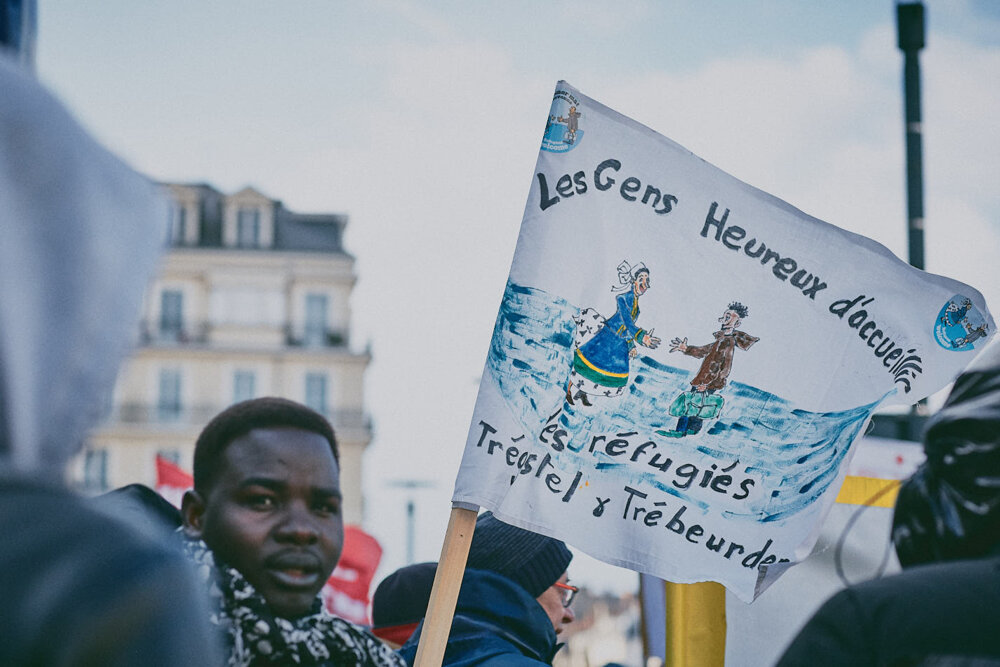 Les Gens Heureux d'accueillir
les réfugiés
Trégastel & Trébeurden